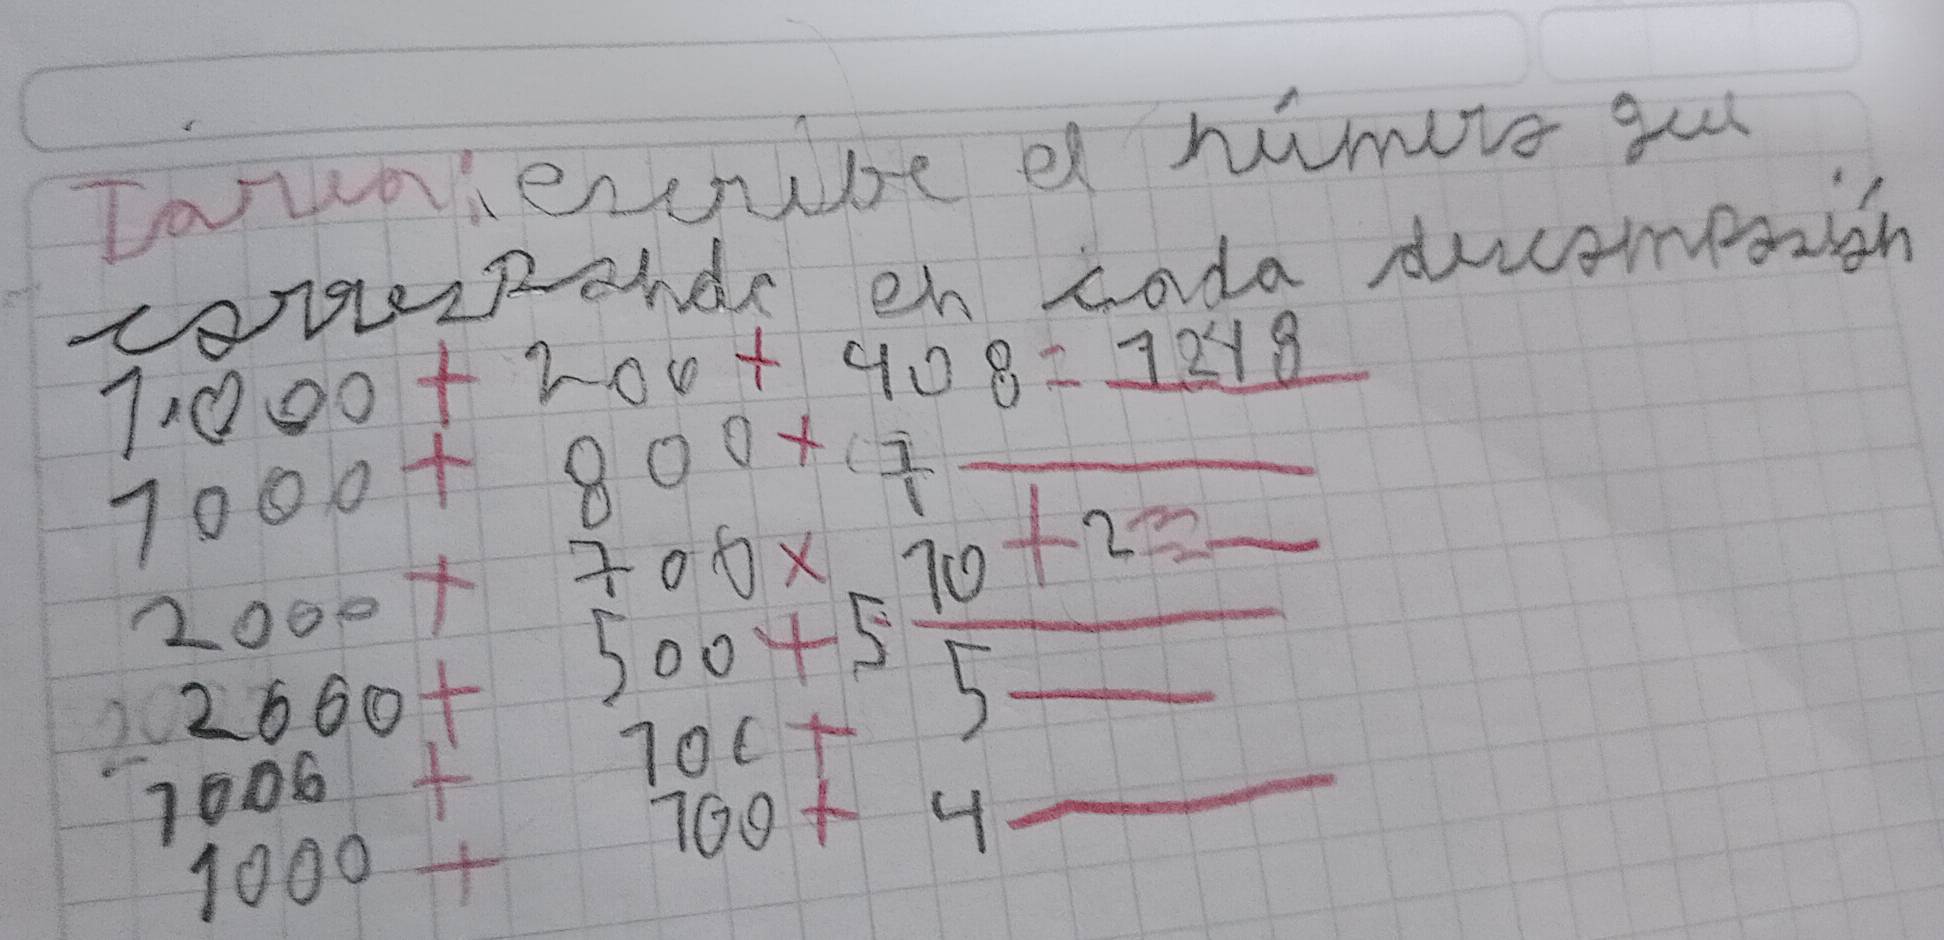 Tarea: escribe el número que
corresponde en cada descomposión
1.000 + 200 + 408 = 1248
1000 + 800 + 7
2000 + 700 x 10 + 2 =
2000 + 500 + 5
1000 + 100 + 5
1000 + 100 + 4